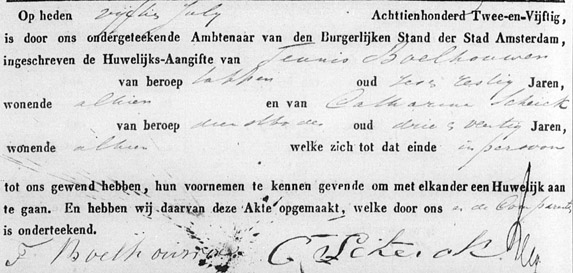 Op heden vijftien July Achttienhonderd Twee-en-Vijftig,
is door ons ondergeteekende Ambtenaar van den Burgerlijken Stand der Stad Amsterdam,
ingeschreven de Huwelijks-Aangifte van Teunis Boelhouwer
van beroep oud Jaren,
wonende alhier en van Catharina Scherck
van beroep dienstbode oud Jaren,
wonende alhier welke zich tot dat einde in persoon
tot ons gewend hebben, hun voornemen te kennen gevende om met elkander een Huwelijk aan
te gaan. En hebben wij daarvan deze Akte opgemaakt, welke door ons en de Comparanten
is onderteekend.
T Boelhouwer C Scherck